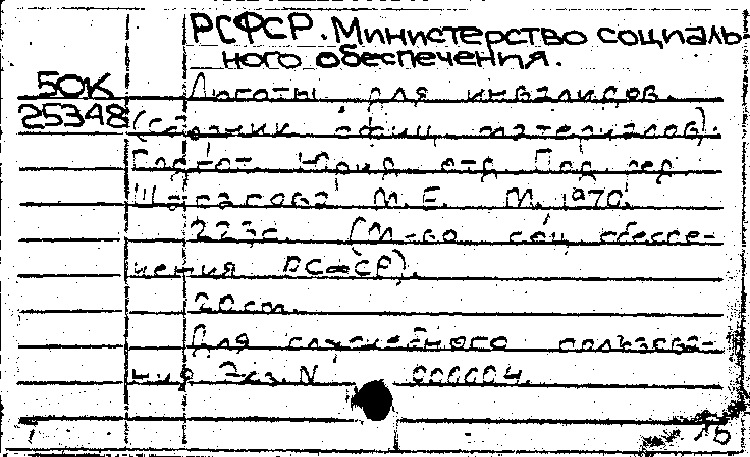 РСФСР. Министерство социаль-
ного обеспечения.
50К Льготы для инвалидов.
25348 (Сборник офиц. материалов).
Подгот. Юрид. отд. Под ред.
М. Е. М. 1970.
223с. (М-во соц. обеспе-
чения РСФСР).
20 cm.
Для служебного пользова-
ния Экз. N 000004.
15